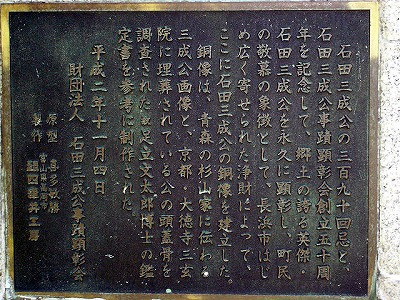 石田三成公の三百九十回忌と、
石田三成公事蹟顕彰会創立五十周
年を記念して、郷土の誇る英傑・
石田三成公を永久に顕彰し、町民
の敬慕の象徴として、長浜市はじ
め広く寄せられた浄財によって、
ここに石田三成公の銅像を建立した。
銅像は、青森の杉山家に伝わる
三成公画像と、京都・大徳寺三玄
院に埋葬されている公の頭蓋骨を
調査された故足立文太郎博士の鑑
定書を参考に制作された。
平成二年十一月四日
財団法人 石田三成公事蹟顕彰会
原型 喜多敏勝
製作